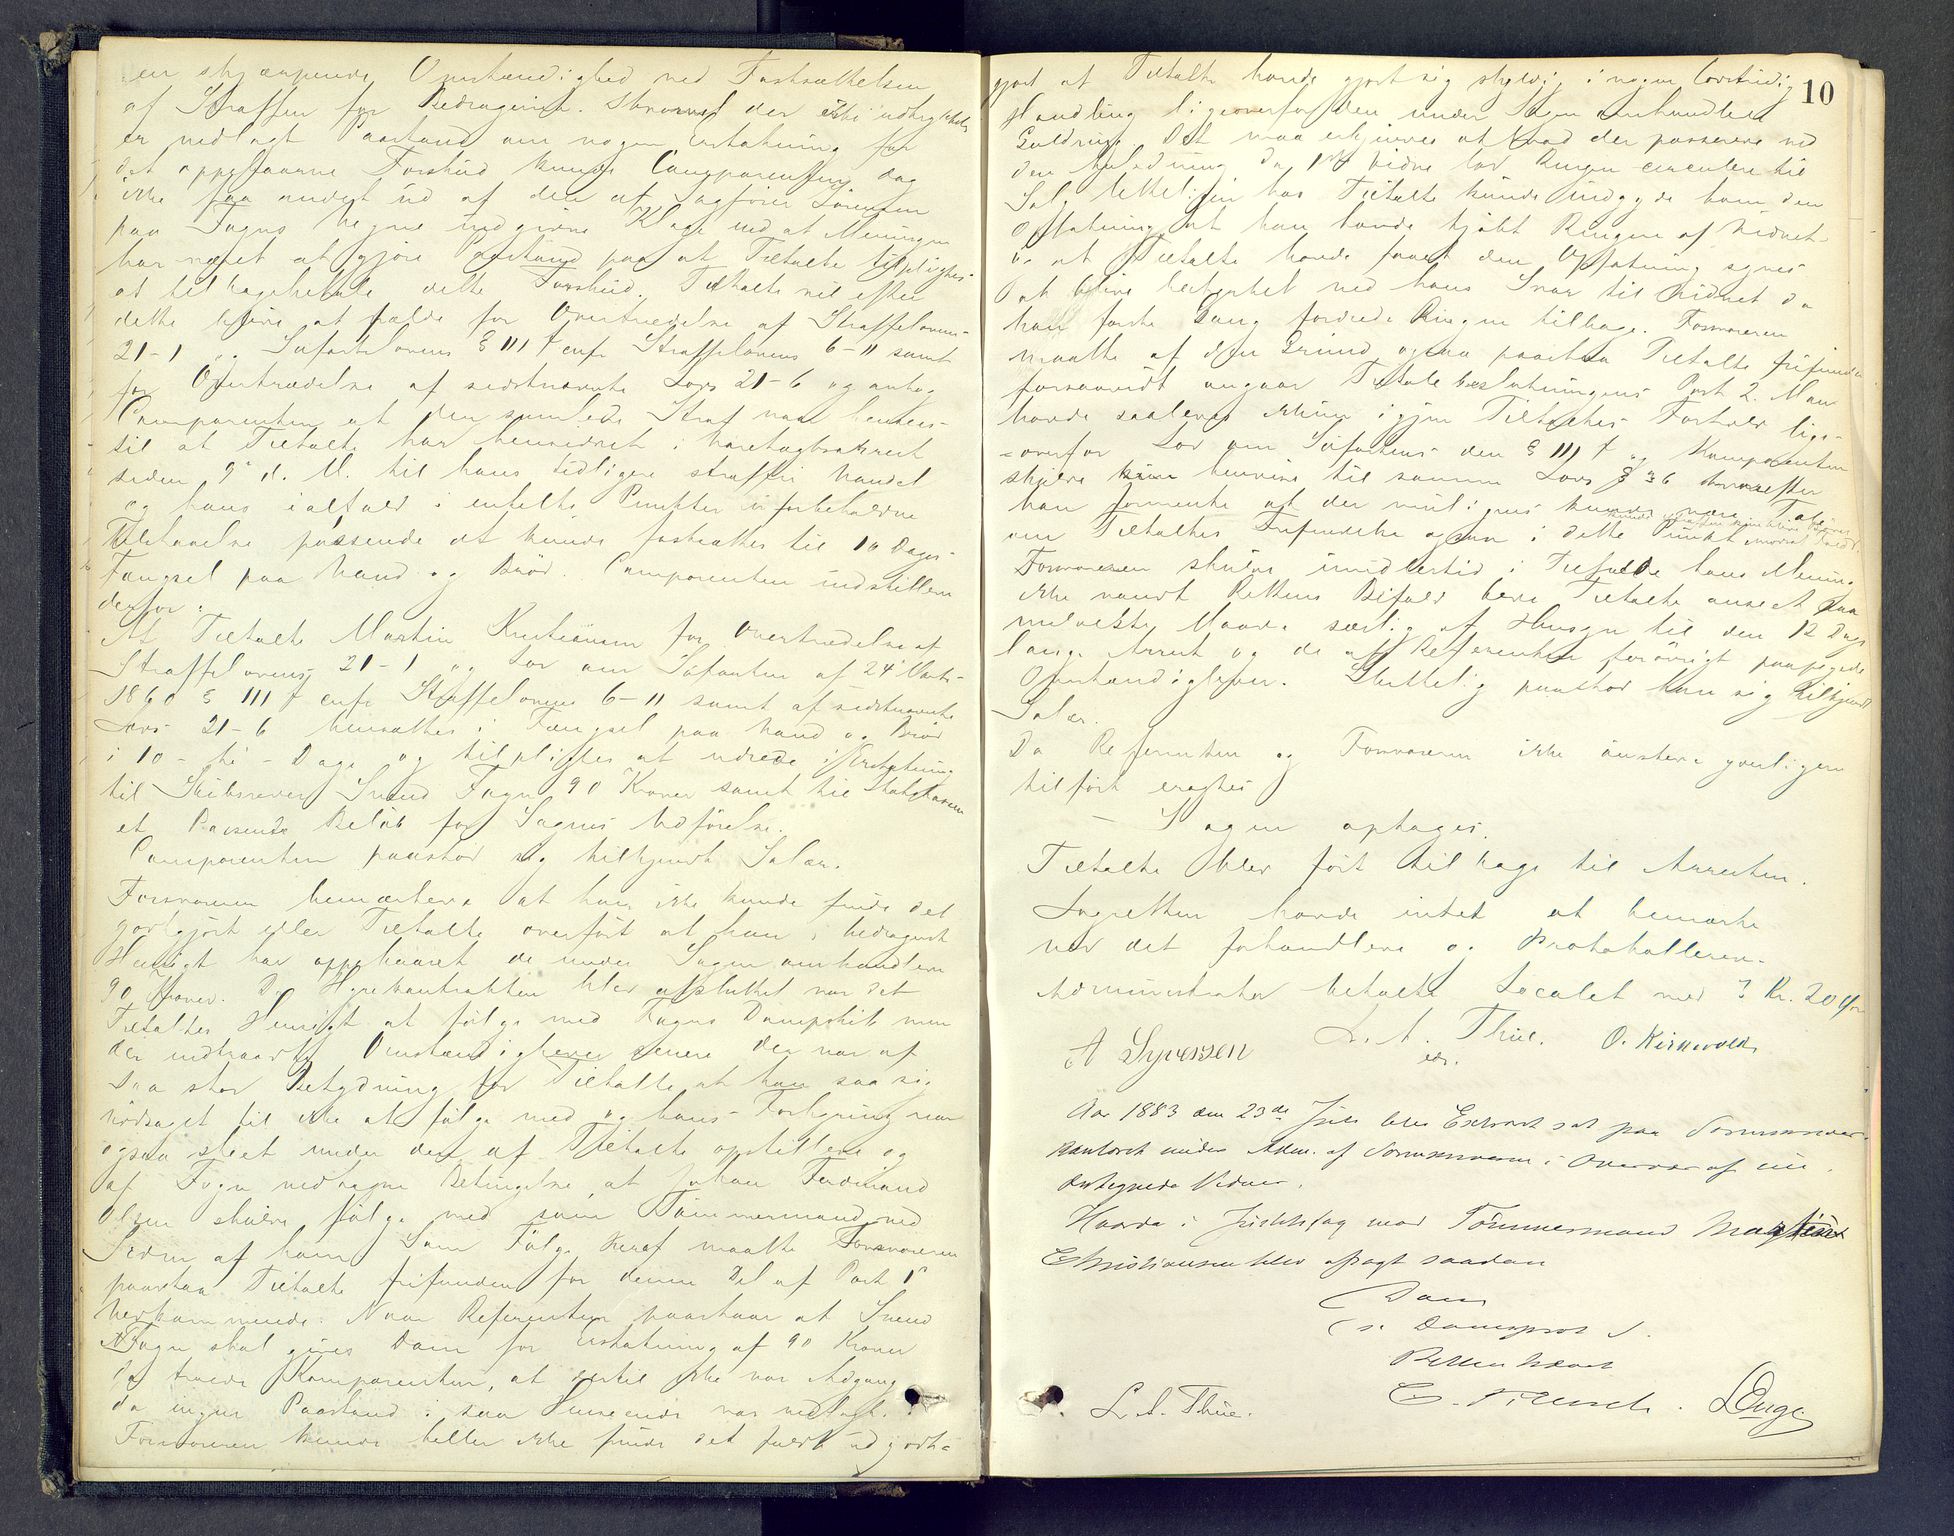 en skjærpende Omstændighed ved Fastsættelsen
af Straffen for Bedrageriet. Skjønt der ikke udtrykkelig
er nedlagt Paastand om nogen Erstatning for
det oppebaarne Forskud kunde Comparenten dog
ikke faa andet ud af den af Sagfører Sörensen
paa Fagns Vegne indgivne Klage end at Meningen
har været at gjøre Paastand paa at Tiltalte tilpligtes
at tilbagebetale dette Forskud. Tiltalte vil efter
dette blive at fælde for Overtrædelse af Straffelovens
21-1 og Söfartslovens § 111 f cnfr Straffelovens 6-11 samt
for Overtrædelse af sidstnævnte Lovs 21-6 og antog
Comparenten at den samlede Straf med Hensyn
til at Tiltalte har hensiddet i Varetægtsarrest
siden 9de d. M. til hans tidligere straffri Vandel
og hans ialfald i enkelte Punkter uforbeholdne
Tilstaaelse passende at kunde fastsættes til 10 Dages
Fængsel paa Vand og Bröd. Comparenten indstillede
derfor:
At Tiltalte Martin Kristiansen for Overtrædelse af
Straffelovens 21-1 og Lov om Söfarten af 24 Marts
1860 § 111 f cnfr Straffelovens 6-11 samt af sidstnævnte
Lovs 21-6 hensættes i Fængsel paa Vand og Bröd
i 10 - ti - Dage og tilpligtes at udrede i Erstatning
til Skibsreder Svend Fagn 90 Kroner samt til Statskassen
et Passende Belöb for Sagens Udförelse.
Comparenten paastod sig tilkjendt Salær.
Forsvareren bemærkede at han ikke kunde finde det
godtgjort eller Tiltalte overfört at han i bedragersk
Hensigt har oppebaaret de under Sagen omhandlede
90 Kroner. Da Hyrekontrakten blev afsluttet var det
Tiltaltes Hensigt at fölge med Fagns Dampskib men
der indtraadte Omstændigheder senere der var af
saa stor Betydning for Tiltalte at han saa sig
nödsaget til ikke at fölge med og hans Forhyring var
ogsaa skeet under den af Tiltalte opstillede og
af Fagn vedtagne Betingelse at Johan Ferdinand
Olsen skulde fölge med som Tömmermand ved
Siden af ham. Som Fölge heraf maatte Forsvareren
paastaa Tiltalte frifunden for denne Del af Post 1
vedkommende. Naar Referenten paastaar at Svend
Fagn skal gives Dom for Erstatning af 90 Kroner
da troede Komparenten, at dertil ikke var Adgang
da ingen Paastand i saa Henseende var nedlagt.
Forsvareren kunde heller ikke finde det fuldt ud godt-
10
gjort at Tiltalte havde gjort sig skyldig i nogen lovstridig
Handling ligeoverfor den under Sagen omhandlede
Guldring. Det maa erkjendes at hvad der passerede ved
den Anledning da 1ste Vidne lod Ringen circulere til
Salg lettelig hos Tiltalte kunde indgyde ham den
Opfatning at han havde kjöbt Ringen af Vidnet
og at Tiltalte havde faaet den Opfatning synes
at blive bestyrket ved hans Svar til Vidnet da
han förste Gang fordrede Ringen tilbage. Forsvareren
maatte af den Grund ogsaa paastaa Tiltalte frifunden
forsaavidt angaar Tiltalebeslutningens Post 2. Man
havde saaledes ikkun igjen Tiltaltes Forhold lige-
overfor Lov om Söfarten den § 111 f og Komparenten
skulde henvise til samme Lovs § 36 hvorefter
han formente at der muligens kunde være Tale
om Tiltaltes Frifindelse ogsaa i dette Punkt
Forsvareren skulde imidlertid i Tilfælde hans Mening
ikke vandt Rettens Bifald bede Tiltalte anseet paa
mildeste Maade særlig af Hensyn til den 12 Dage
lange Arrest og de af Referenten forövrigt paapegede
Omstændigheder. Sluttelig paastod han sig tilkjendt
Salær.
Da Referenten og Forsvareren ikke önskede yderligere
tilfört eragtes
Sagen optages.
Tiltalte blev fört tilbage til Arresten.
Lagretten havde intet at bemærke
ved det forhandlede og Protokolleren.
Administrator betalte Localet med 3 Kr. 20 Öre
A Syversen L. A. Thue. O. Kirkevold
edr.
Aar 1883 den 23de Juli blev Extraret sat paa Sorenskriver-
kontoret under Adm. af Sorenskriveren i Overvær af un-
dertegnede Vidner.
Havde i Justitssag mod Tömmermand Martin
Christiansen blev afsagt saadan
Dom
s. Domsprot.
Retten hævet
L. A. Thue. LEnge